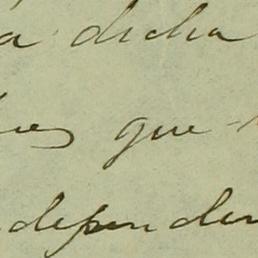 a dicha
que
depen den